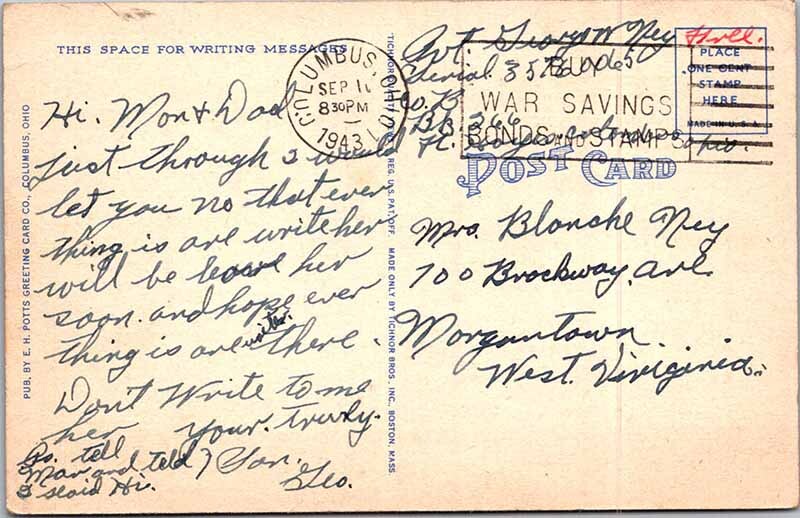 THIS SPACE FOR WRITING MESSAGES
Hi. Mon & Dad
just through I would
let you no that ever
thing is are write her
will be leave her
soon. and hope ever
thing is are writer. there.
Don't Write to me
her your. truly.
Son.
Geo.
Ps. tell
Mar and teld
I seaid Hi.
COLUMBUS, OHIO
SEP 1
8 30 PM
1943
BUY
WAR SAVINGS
BONDS AND STAMPS
Pvt. George W Ney
Serial. 35
Co. B
Bk. 266
Ft. Hayes Columbus
Ohio.
Free.
PLACE
ONE CENT
STAMP
HERE
MADE IN U.S.A.
POST CARD
Mrs. Blanche Ney
700 Brockway. ave
Morgantown.
West. Viriginia.
PUB. BY E. H. POTTS GREETING CARD CO., COLUMBUS, OHIO
REG. U.S. PAT. OFF. MADE ONLY BY TICHNOR BROS., INC., BOSTON, MASS.